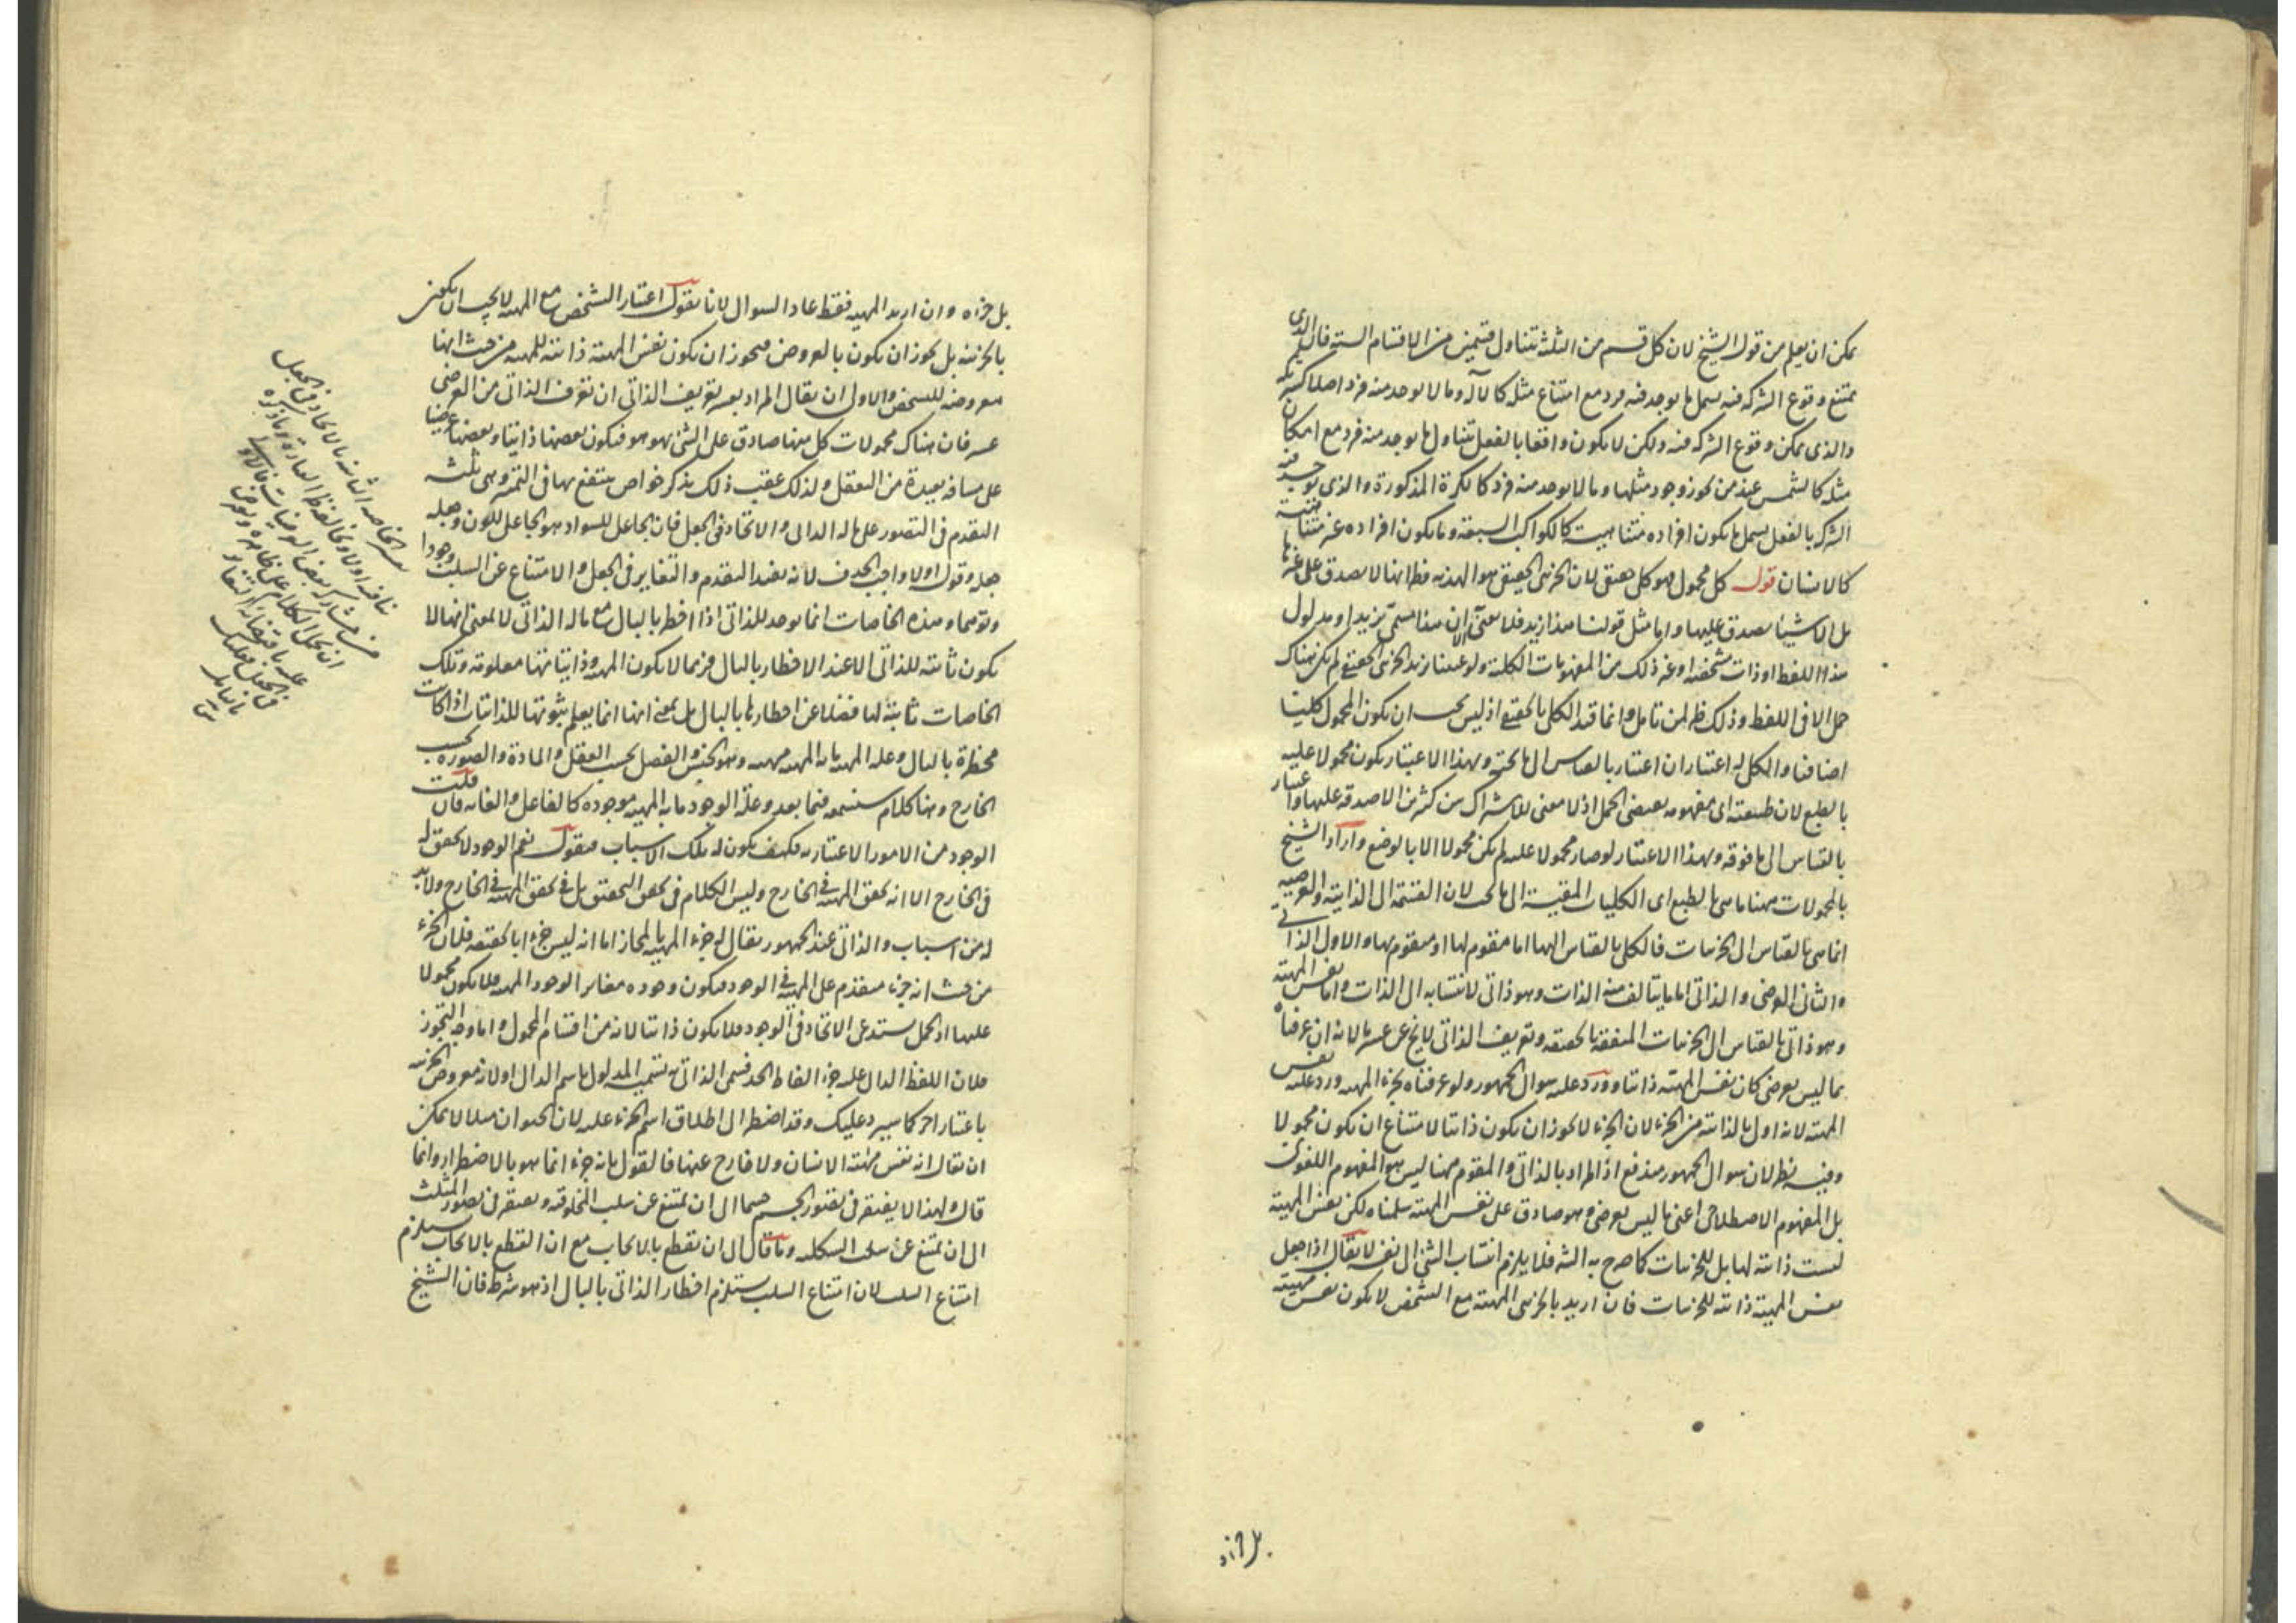 يمكن ان يعلم من قول الشيخ لان كل قسم من الثلثة تتناول قسمين من الاقسام الستة فان الذي
يمتنع وقوع الشركة فيه يشمل ما يوجد فيه فرد مع امتناع مثله كالاله وما لا يوجد منه فرد اصلا كشريك
والذي يمكن وقوع الشركة فيه ولكن لا يكون واقعا بالفعل تتناول ما يوجد منه فرد مع امكان
مثله كالشمس عند من يجوز وجود مثلها وما لا يوجد منه فرد كالكرة المذكورة والذي توجد فيه
الشركة بالفعل يشمل ما يكون افراده متناهية كالكواكب السبعة وما يكون افراده غير متناهية
كالانسان قوله كل محمول فهو كلي حقيقي لان الجزئي الحقيقي هو الهذية فظ انها لا يصدق على غيرها
بل الاشياء يصدق عليها واما مثل قولنا هذا زيد فلا يعنى الا ان هذا مسمى بزيد او مدلول
هذا اللفظ او ذات مشخصة او غير ذلك من المفهومات الكلية ولو عنينا زيد الجزئي الحقيقي لم يكن هناك
حمل الا في اللفظ وذلك ظ لمن تامل وانما قيد الكلي بالحقيقي اذ ليس يجب ان يكون المحمول كليا
اضافيا والكلي له اعتباران اعتبار بالقياس الى ما تحته وبهذا الاعتبار يكون محمولا عليه
بالطبع لان طبيعته اي مفهومه يقتضي الحمل اذ لا معنى للاشتراك بين كثيرين الا صدقه عليها واعتبار
بالقياس الى ما فوقه وبهذا الاعتبار لو صار محمولا عليه لم يكن محمولا الا بالوضع واراد الشيخ
بالمحمولات ههنا ما هي بالطبع اي الكليات المقيسة الى ما تحت لان القسمة الى الذاتية والعرضية
انما هي بالقياس الى الجزئيات فالكلي بالقياس اليها اما مقوم لها او متقوم بها والاول الذاتي
والثاني العرضي والذاتي اما ما يتألف منه الذات وهو ذاتي لانتسابه الى الذات واما نفس المهية
وهو ذاتي بالقياس الى الجزئيات المتفقة بالحقيقة وتعريف الذاتي لا يخ عن عسر ما لانه ان عرفناه
بما ليس بعرضي كان نفس المهية ذاتيا وورد عليه سوال الجمهور ولو عرفناه بجزء المهية ورد عليه نفس
المهية لانه اولى بالذاتية من الجزء لان الجزء لا يجوز ان يكون ذاتيا لامتناع ان يكون محمولا
وفيه نظر لان سوال الجمهور مندفع اذ المراد بالذاتي والمقوم ههنا ليس هو المفهوم اللغوي
بل المفهوم الاصطلاحي اعني ما ليس بعرضي وهو صادق على نفس المهية سلمناه لكن نفس المهية
ليست ذاتية لها بل للجزئيات كما صرح به الشه فلا يلزم انتساب الشي الى نفسه لا يقال اذا جعل
نفس المهية ذاتية للجزئيات فان اريد بالجزئي المهية مع التشخص لا يكون نفس مهيته
بل جزاه وان اريد المهية فقط عاد السوال لانا نقول اعتبار التشخص مع المهية لا يجب ان يكون
بالجزئية بل يجوز ان يكون بالعروض فيجوز ان يكون نفس المهية ذاتية للمهية من حيث انها
معروضة للتشخص والاولى ان يقال المراد بعسر تعريف الذاتي ان تعرف الذاتي من العرضي
عسر فان هناك محمولات كل منها صادق على الشي بهو هو فيكون بعضها ذاتيا وبعضها عرضيا
على مسافة بعيدة من التعقل ولذلك عقب ذلك بذكر خواص ينتفع بها في التميز وهي ثلثة
التقدم في التصور على ما له الذاتي والاتحاد في الجعل فان الجاعل للسواد هو الجاعل للون وجعله
جعله وقوله اولا واجب الحذف لانه يفيد التقدم والتغاير في الجعل والامتناع عن السلب وجودا
وتوهما وهذه الخاصات انما يوجد للذاتي اذا اخطر بالبال مع ما له الذاتي لا بمعنى انها لا
يكون ثابتة للذاتي الا عند الاخطار بالبال فربما لا يكون المهية وذاتياتها معلومة وتلك
الخاصات ثابتة لها فضلا عن اخطارها بالبال بل بمعنى انها انما يعلم ثبوتها للذاتيات اذا كانت
مخطرة بالبال وعلة المهية ما به المهية مهية وهو الجنس والفصل بحسب العقل والمادة والصورة بحسب
الخارج وهنا كلام ستسمعه فيما بعد وعلة الوجود ما به المهية موجودة كالفاعل والغاية فان قلت
الوجود من الامور الاعتبارية فكيف يكون له تلك الاسباب فنقول نعم الوجود لا تحقق له
في الخارج الا انه تحقق المهية في الخارج وليس الكلام في تحقق التحقق بل في تحقق المهية في الخارج ولا بد
له من اسباب والذاتي عند الجمهور يقال له جزء المهية بالمجاز اما انه ليس جزءا بالحقيقة فلان الجزء
من حيث انه جزء متقدم على المهية في الوجود فيكون وجوده مغايرا لوجود المهية فلا يكون محمولا
عليها اذ الحمل يستدعي الاتحاد في الوجود فلا يكون ذاتيا لانه من اقسام المحمول واما وجه التجوز
فلان اللفظ الدال عليه جزء الفاظ الحد فسمي الذاتي به تسمية المدلول باسم الدال او لانه معروض الجزئية
باعتبار اخر كما سيرد عليك وقد اضطر الى اطلاق اسم الجزء عليه لان الحيوان مثلا لا يمكن
ان يقال انه نفس مهية الانسان ولا خارج عنها فالقول بانه جزء انما هو بالاضطرار وانما
قال ولهذا لا يفتقر في تصور الجسم جسما الى ان يمتنع عن سلب المخلوقية ويفتقر في تصور المثلث
الى ان يمتنع عن سلب الشكلية وما قال الى ان يقطع بالايجاب مع ان القطع بالايجاب يستلزم
امتناع السلب لان امتناع السلب يستلزم اخطار الذاتي بالبال اذ هو شرط فان الشيخ